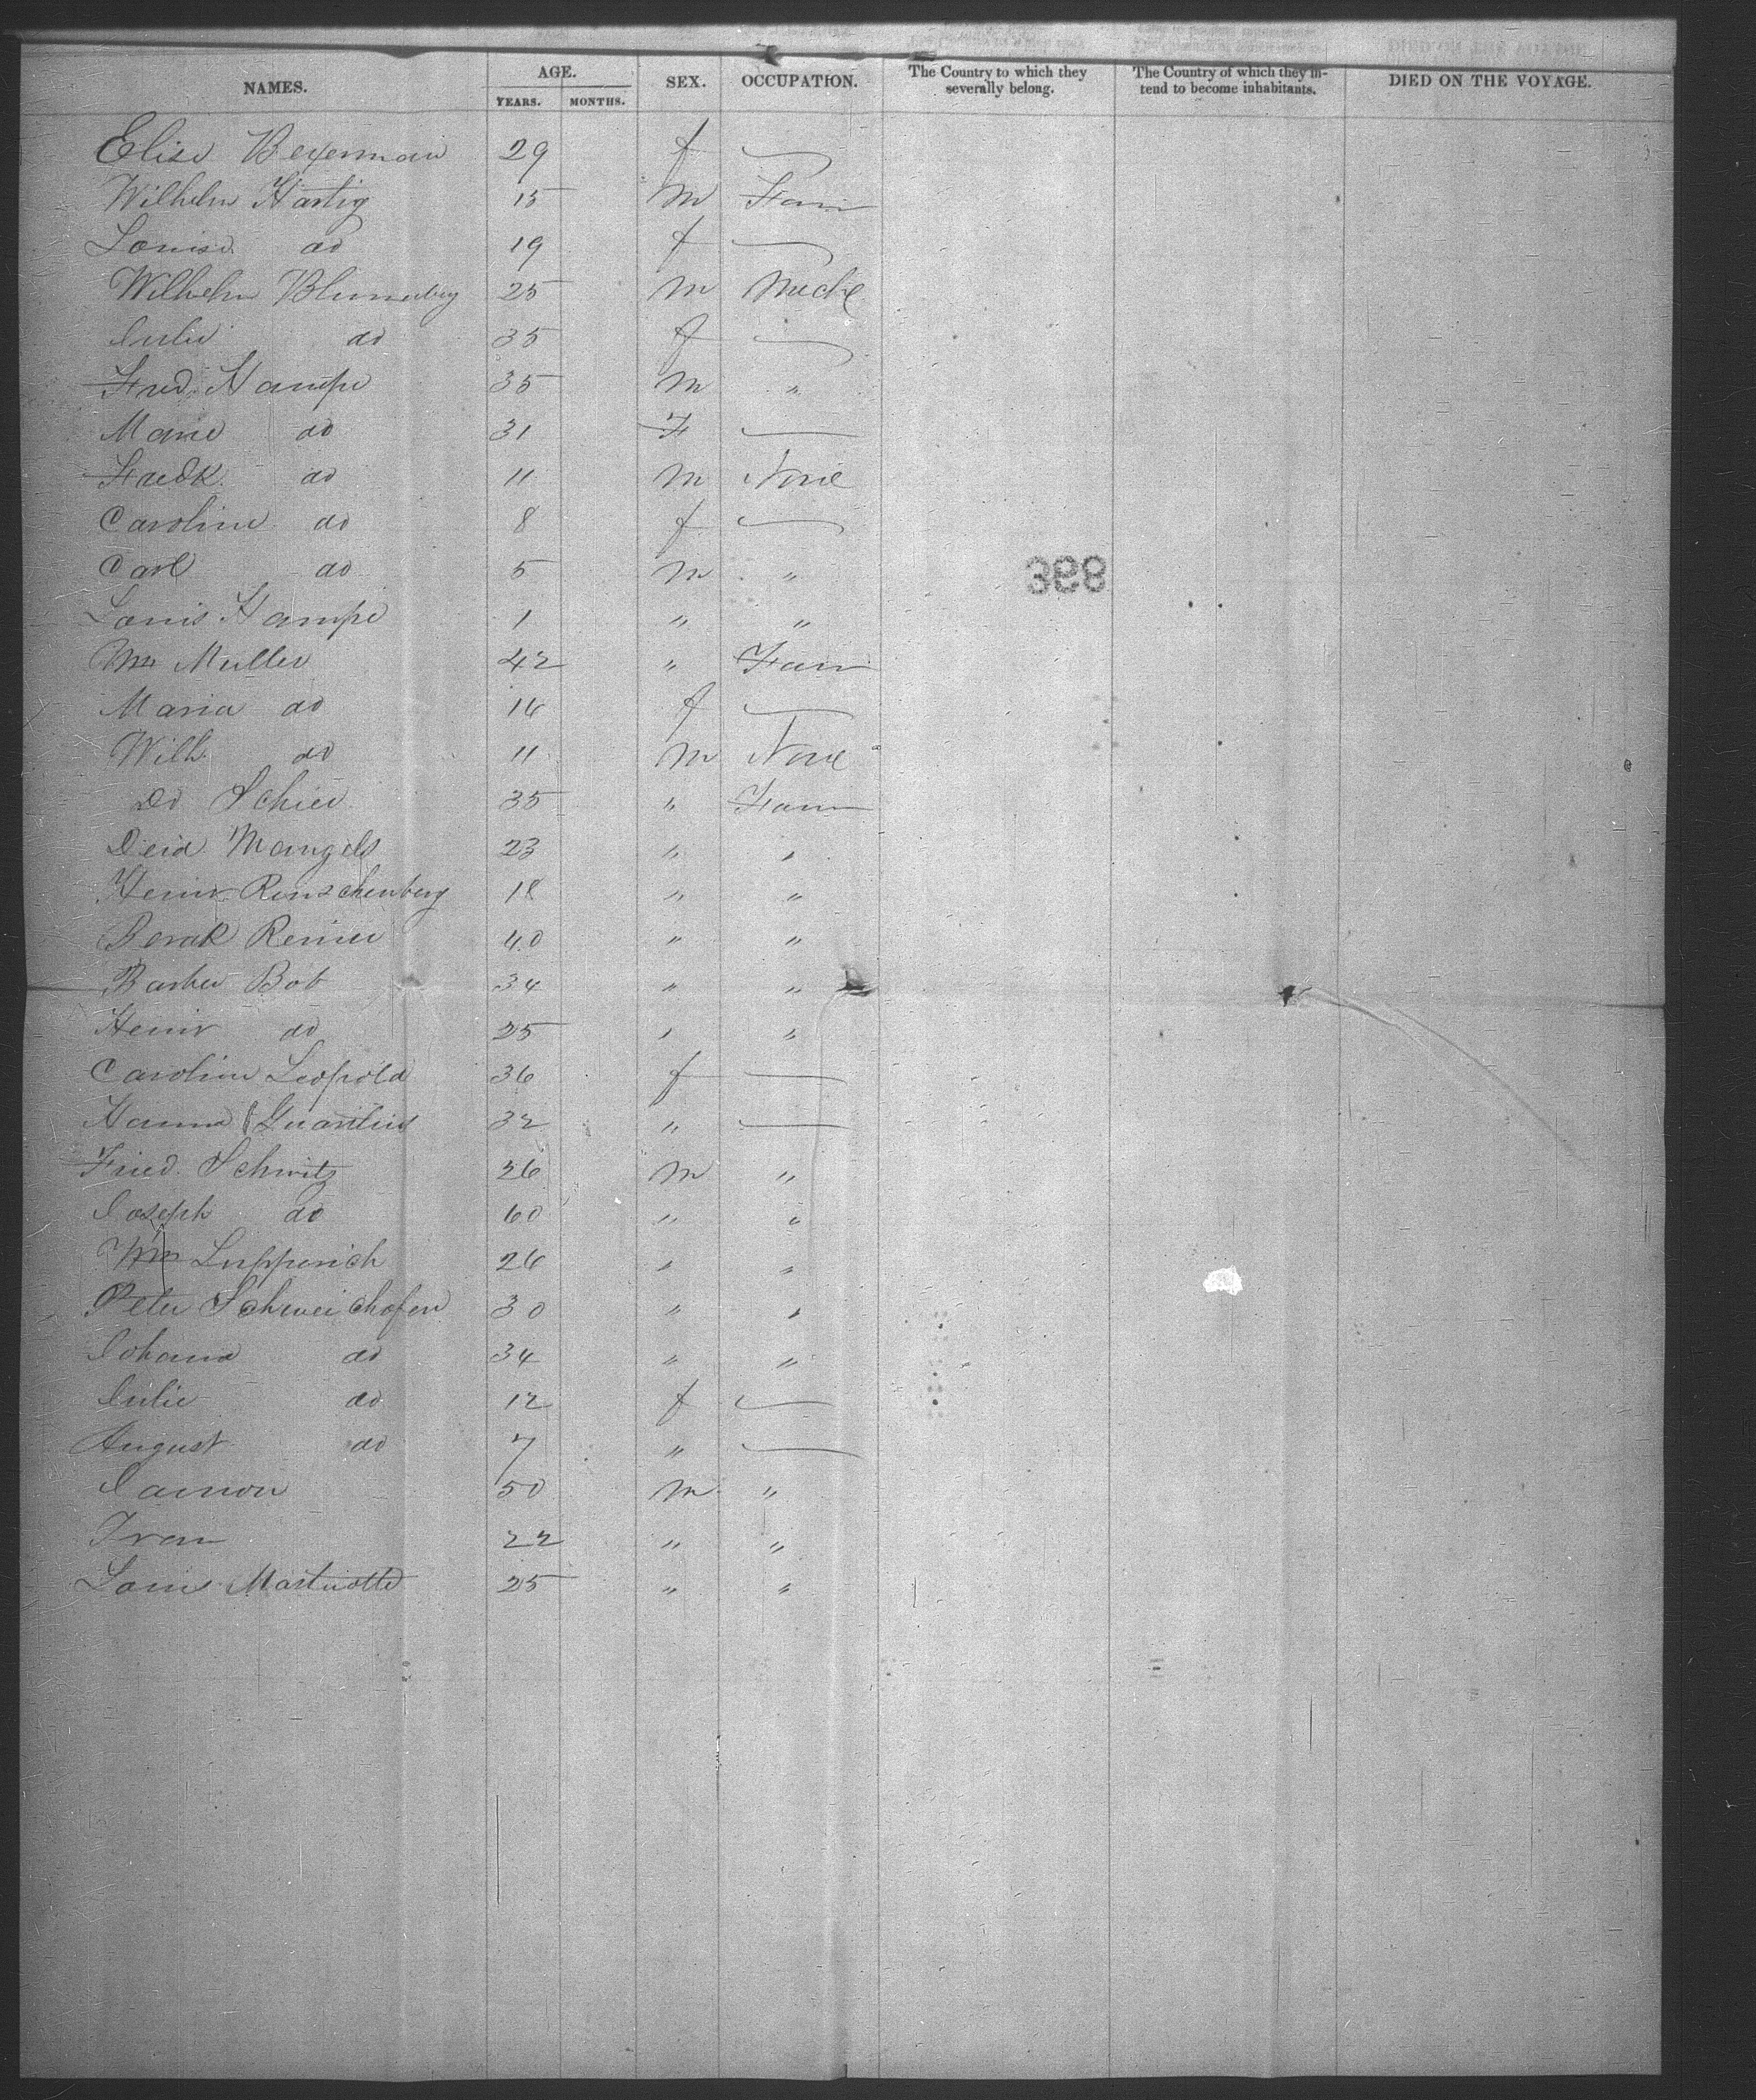 NAMES. AGE. YEARS. MONTHS. SEX. OCCUPATION. The Country to which they severally belong. The Country of which they intend to become inhabitants. DIED ON THE VOYAGE.
Elise Beyerman 29 f —
Wilhelm Hartig 15 m Farm
Louise do 19 f —
Wilhelm Blumenberg 25 m Mech
Julie do 35 f —
Fred. Hampe 35 m "
Marie do 31 F —
Fredk. do 11 m None
Caroline do 8 f —
Carl do 5 m "
368
Louis Hampe 1 " "
Wm Muller 42 " Farm
Maria do 16 f —
Wilh. do 11 m None
Do 35 " Farm
Deid Mangels 23 " "
Heinr Renschenberg 18 " "
40 " "
Bob 34 " "
Heinr do 25 " "
Caroline Leopold 36 f —
Hanna 32 " —
Fried. Schmitz 26 m "
Joseph do 60 " "
Wm Lupperich 26 " "
Peter Schweichofer 30 " "
Johann do 34 " "
Julie do 12 f —
August do 7 " —
50 m "
22 " "
Louis 25 " "